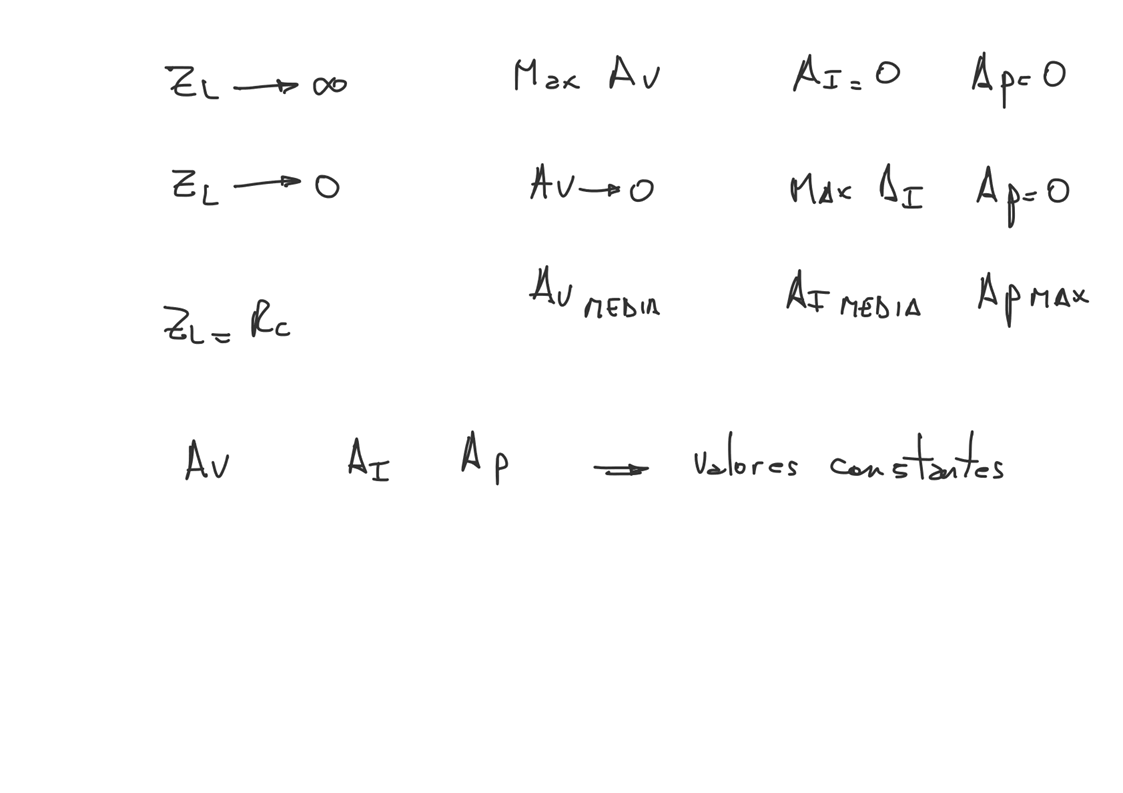 Z_L → ∞ Max Av A_I = 0 Ap = 0
Z_L → 0 Av → 0 MAX A_I Ap = 0
Z_L = R_C Av MEDIA A_I MEDIA Ap MAX
Av A_I Ap → valores constantes